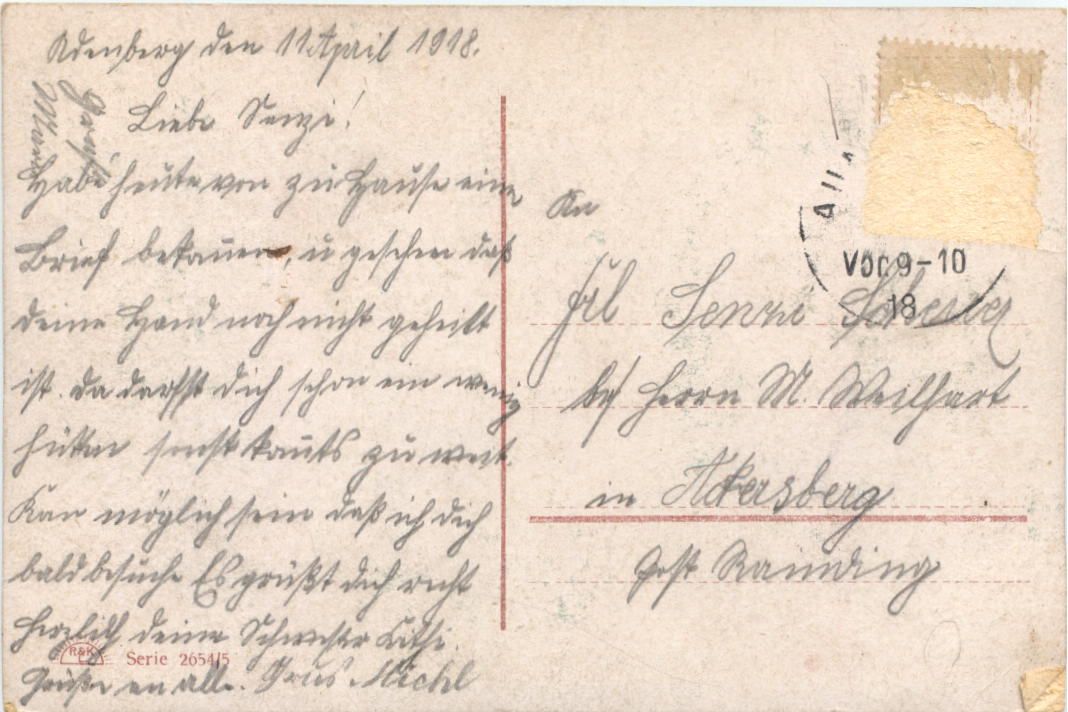 Adenberg den 11 April 1918.
Liebe Senzi!
Habe heute von zu Hause eine
Brief bekamen, u gesehen daß
deine Hand noch nicht geheilt
ist. Da darfst dich schon ein wenig
hüten sonst kauts zu weit.
Kan möglich sein daß ich dich
bald besuche Es grüßt dich recht
herzlich deine Schwester Kathi.
Grüße an alle. Grus Michl
R&K
Serie 2654/5
An
Frl Senzi
bei Herrn M. Weilhart
in Ackersberg
Post Ramding
Vor 9-10
18